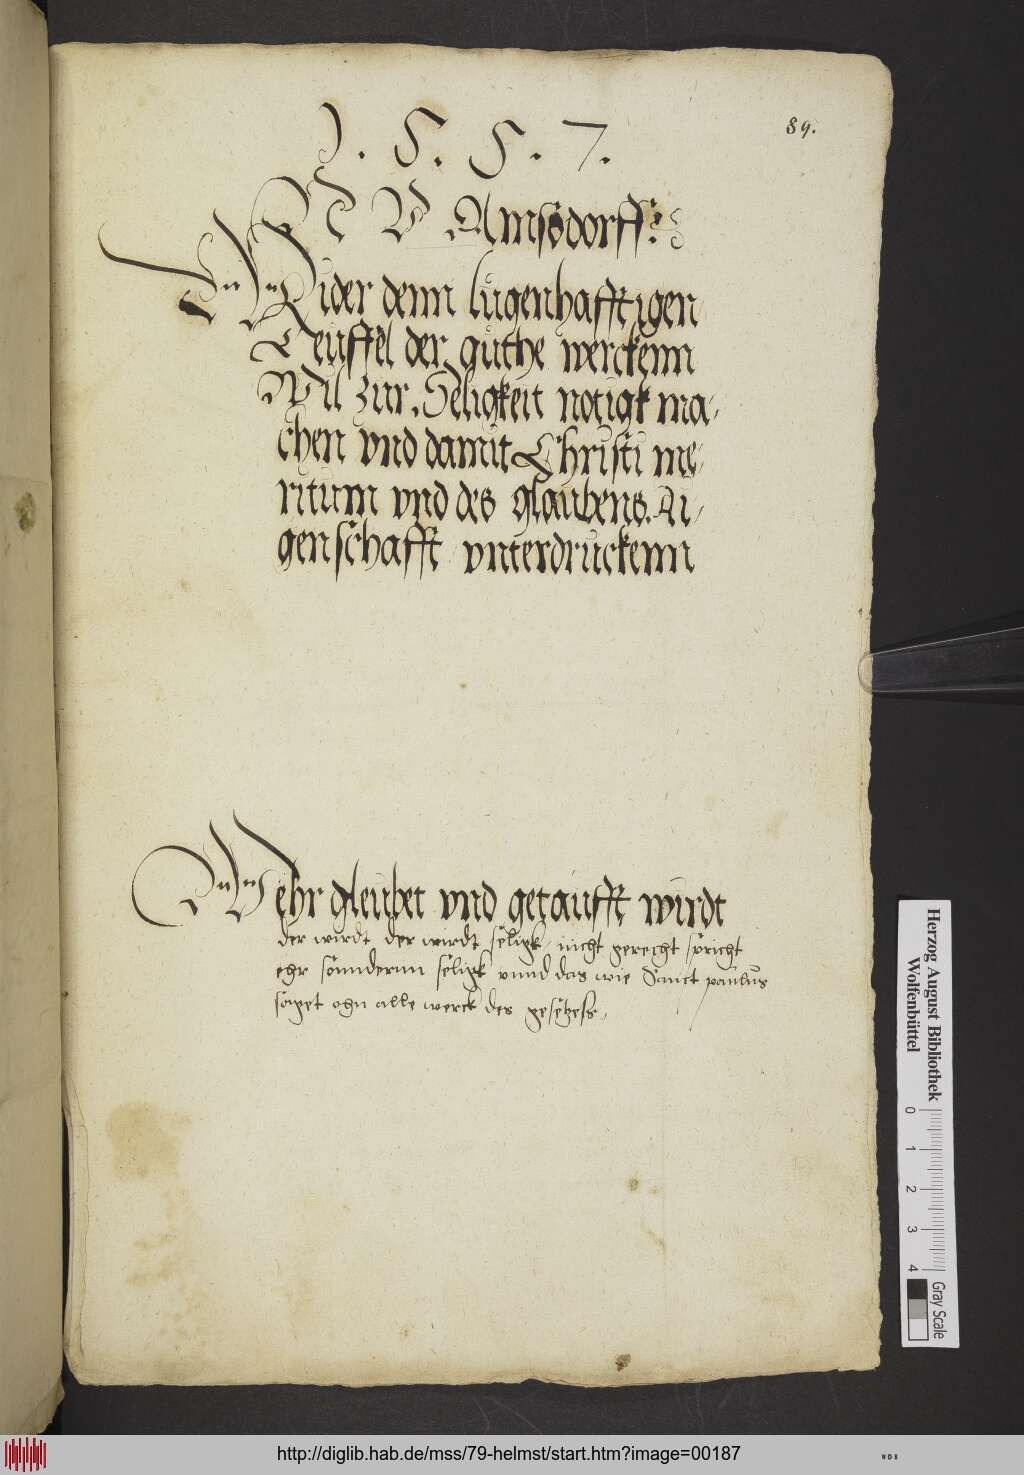 89.
1. 5. 5. 7.
N V Amsdorff:
Wider denn lugenhafftigen
Teuffel der guthe werckenn
Wil zur Seligkeit notigk ma-
chen vnd damit Christi me-
ritum vnd des glaubens Ai-
genschafft vnterdruckenn
Wehr gleubet vnd getaufft wirdt
der wirdt der wirdt seligk, nicht gerecht spricht
ehr sonndernn seligk vnnd das wie Sanct paulus
saget ohn alle werck des gesetzess,
Herzog August Bibliothek
Wolfenbüttel
0 1 2 3 4
Gray Scale
http://diglib.hab.de/mss/79-helmst/start.htm?image=00187